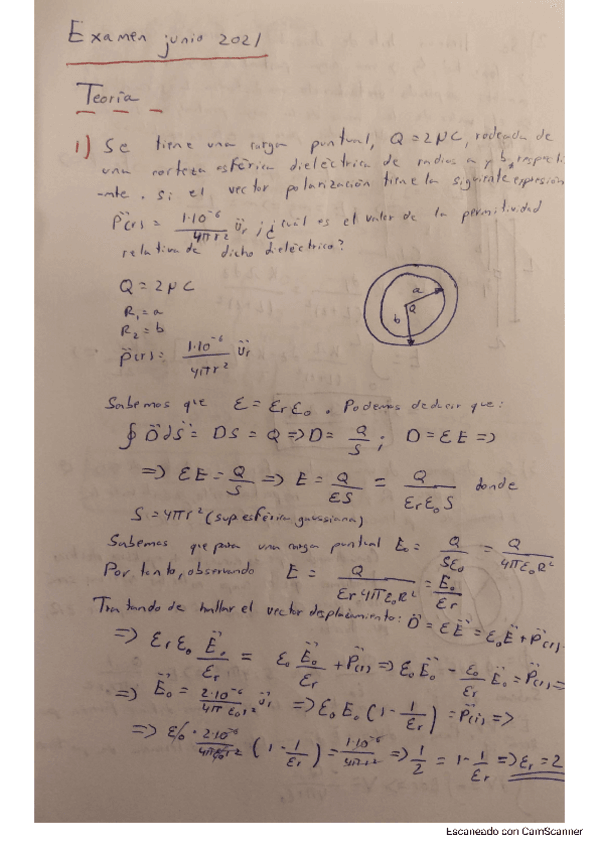 Examen junio 2021
Teoría
1) Se tiene una carga puntual, Q = 2μC, rodeada de
una corteza esférica dieléctrica de radios a y b, respecti-
-mte. Si el vector polarización tiene la siguiente expresión
P⃗(r) = 1·10⁻⁶/4πr² u⃗r ; ¿cuál es el valor de la permitividad
relativa de dicho dieléctrico?
Q = 2μC
R₁ = a
R₂ = b
P⃗(r) = 1·10⁻⁶/4πr² u⃗r
a
Q
b
Sabemos que ε = εrε₀. Podemos deducir que:
∮ D⃗ dS⃗ = DS = Q => D = Q/S ; D = εE =>
=> εE = Q/S => E = Q/εS = Q/εrε₀S donde
S = 4πr² (sup esférica gaussiana)
Sabemos que para una carga puntual E₀ = Q/Sε₀ = Q/4πε₀R²
Por tanto, observando E = Q/εr4πε₀R² = E₀/εr
Tratando de hallar el vector desplazamiento: D⃗ = εE⃗ = ε₀E⃗ + P⃗(r)
=> εrε₀ E⃗₀/εr = ε₀ E⃗₀/εr + P⃗(r) => ε₀E⃗₀ - ε₀/εr E⃗₀ = P⃗(r) =>
=> E⃗₀ = 2·10⁻⁶/4πε₀r² u⃗r => ε₀E₀(1 - 1/εr) = P⃗(r) =>
=> ε₀ · 2·10⁻⁶/4πε₀r² (1 - 1/εr) = 1·10⁻⁶/4πr² => 1/2 = 1 - 1/εr => εr = 2
Escaneado con CamScanner